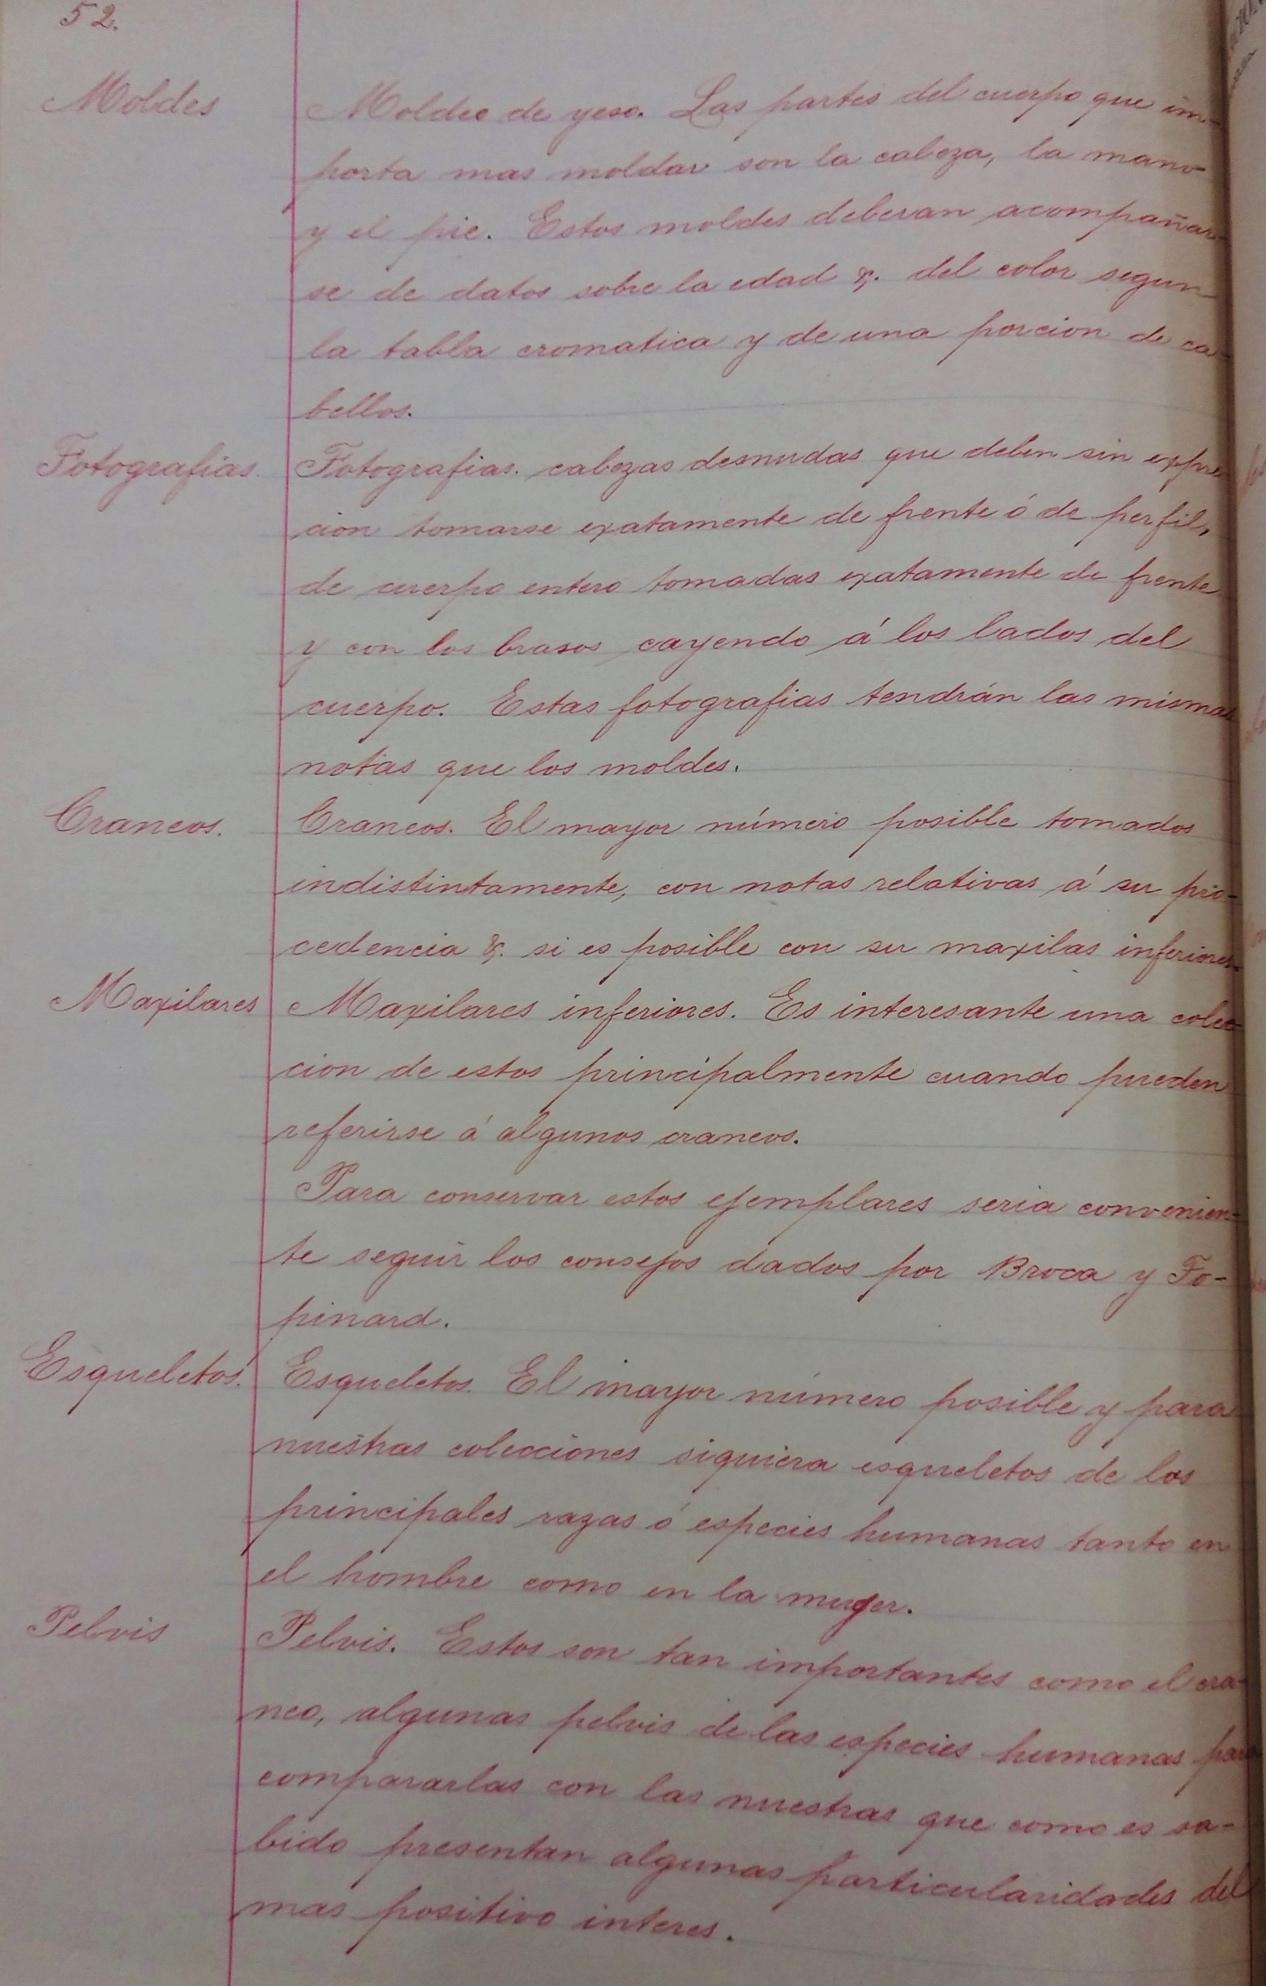 52.
Moldes
Moldeo de yeso. Las partes del cuerpo que im-
porta mas moldar son la cabeza, la mano
y el pie. Estos moldes deberan acompañar-
se de datos sobre la edad &. del color segun
la tabla cromatica y de una porcion de ca-
bellos.
Fotografias.
Fotografias. cabezas desnudas que deben sin expre
cion tomarse exatamente de frente ó de perfil,
de cuerpo entero tomadas exatamente de frente
y con los brasos cayendo á los lados del
cuerpo. Estas fotografias tendrán las mismas
notas que los moldes.
Craneos.
Craneos. El mayor número posible tomados
indistintamente, con notas relativas á su pro-
cedencia &. si es posible con su maxilas inferiores.
Maxilares
Maxilares inferiores. Es interesante una colec-
cion de estos principalmente cuando pueden
referirse á algunos craneos.
Para conservar estos ejemplares seria convenien-
te seguir los consejos dados por Broca y Fo-
pinard.
Esqueletos.
Esqueletos. El mayor número posible y para
nuestras colecciones siquiera esqueletos de los
principales razas ó especies humanas tanto en
el hombre como en la muger.
Pelvis
Pelvis. Estos son tan importantes como el cra-
neo, algunas pelvis de las especies humanas para
compararlas con las nuestras que como es sa-
bido presentan algunas particularidades del
mas positivo interes.